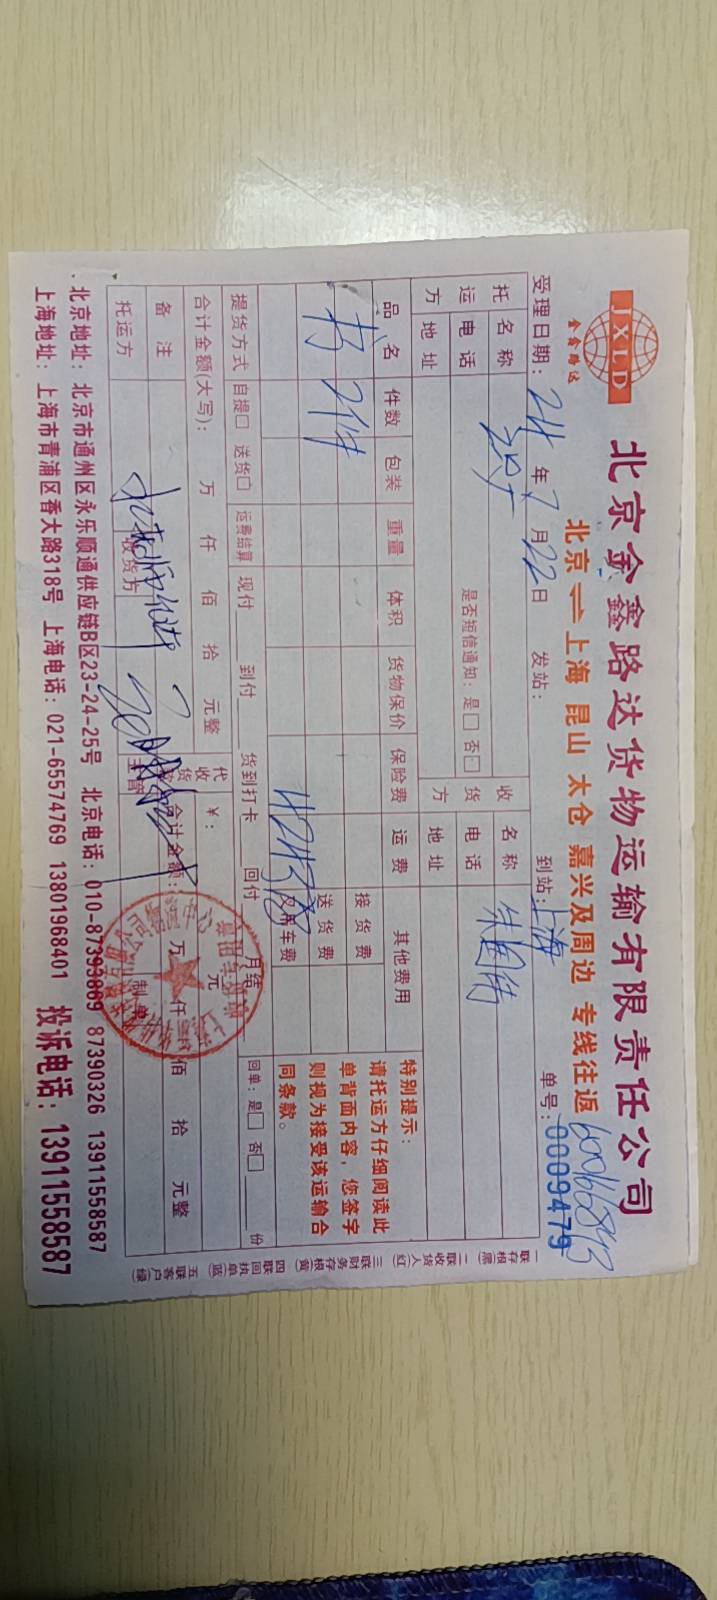 JXLD
金鑫路达
北京金鑫路达货物运输有限责任公司
北京⇌上海 昆山 太仓 嘉兴及周边 专线往返
受理日期：24年7月22日 发站： 到站：上海 单号：0009479
托运方 名称 收货方 名称
电话 是否短信通知：是□ 否□ 电话
地址 地址
品名 件数 包装 重量 体积 货物保价 保险费 运费 其他费用
书 2件
接货费
送货费
特别提示：
请托运方仔细阅读此
单背面内容，您签字
则视为接受该运输合
同条款。
提货方式 自提□ 送货□ 运费结算 现付____ 到付____ 货到打卡____ 回付____ 月结____ 回单：是□ 否□ ____份
合计金额(大写)： 万 仟 佰 拾 元整 代收货款 ¥： 元
备注 合计金额： 万 仟 佰 拾 元整
托运方 收货方 主管 制单
北京地址：北京市通州区永乐顺通供应链B区23-24-25号 北京电话：010-87393809 87390326 13911558587
上海地址：上海市青浦区香大路318号 上海电话：021-65574769 13801968401 投诉电话：13911558587
一联存根(黑) 二联收货人(红) 三联财务存根(黄) 四联回执单(蓝) 五联客户(绿)